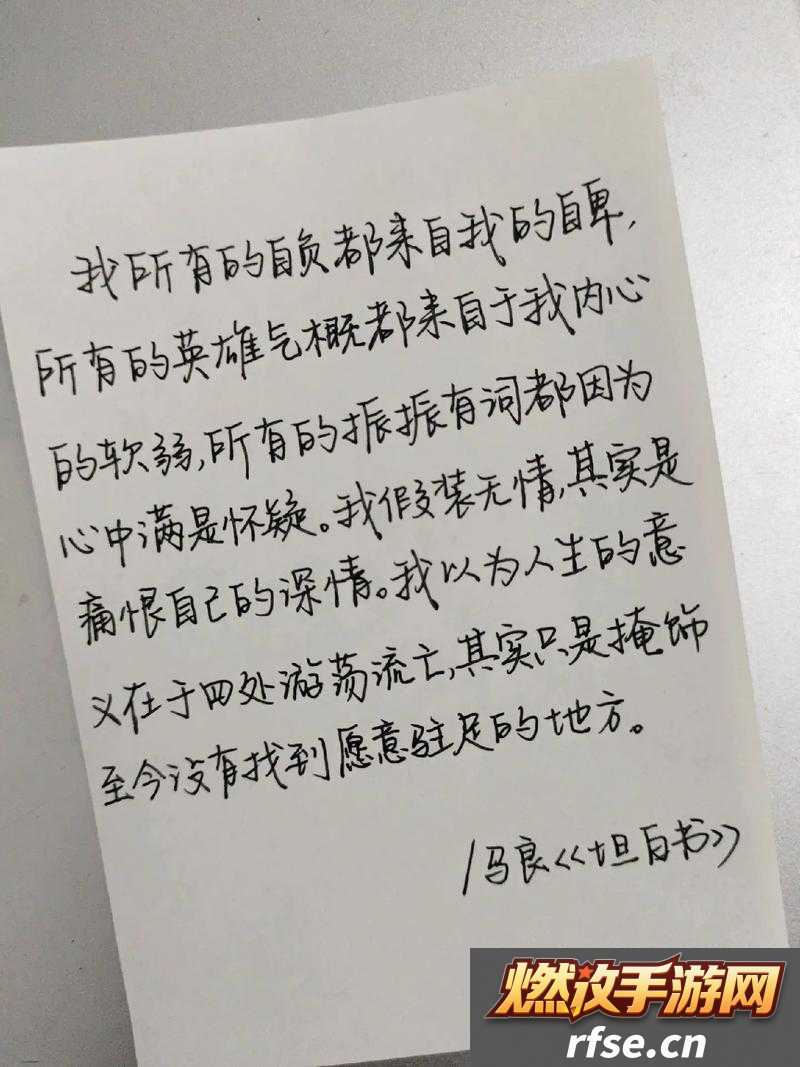 我所有的自负都来自我的自卑，
所有的英雄气概都来自于我内心
的软弱，所有的振振有词都因为
心中满是怀疑。我假装无情，其实是
痛恨自己的深情。我以为人生的意
义在于四处游荡流亡，其实只是掩饰
至今没有找到愿意驻足的地方。
/马良《坦白书》
燃放手游网
rfse.cn